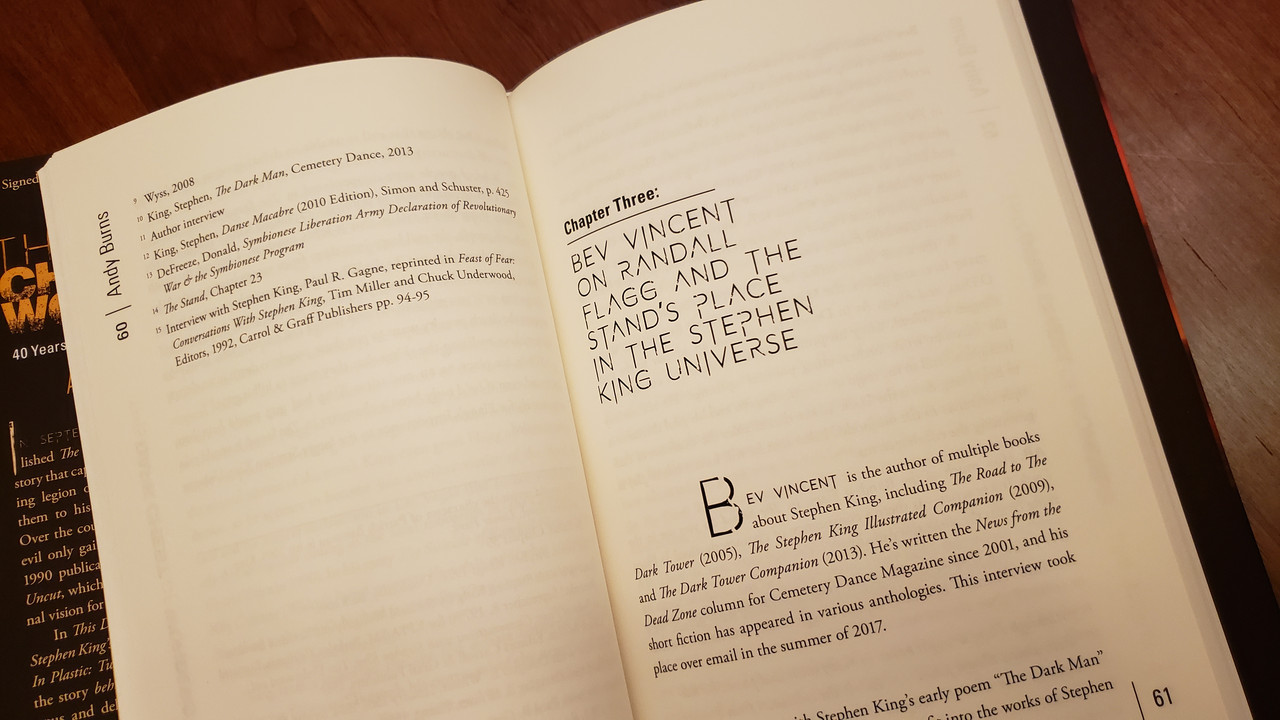 Signed
40 Years
IN SEPTE
lished The
story that cap
ing legion
them to his
Over the cou
evil only gai
1990 publica
Uncut, which
nal vision for
In This
Stephen King's
In Plastic: Tu
the story beh
and del
60 | Andy Burns
9 Wyss, 2008
10 King, Stephen, The Dark Man, Cemetery Dance, 2013
11 Author interview
12 King, Stephen, Danse Macabre (2010 Edition), Simon and Schuster, p. 425
13 DeFreeze, Donald, Symbionese Liberation Army Declaration of Revolutionary
War & the Symbionese Program
14 The Stand, Chapter 23
15 Interview with Stephen King, Paul R. Gagne, reprinted in Feast of Fear:
Conversations With Stephen King, Tim Miller and Chuck Underwood,
Editors, 1992, Carrol & Graff Publishers pp. 94-95
Chapter Three:
BEV VINCENT
ON RANDALL
FLAGG AND THE
STAND'S PLACE
IN THE STEPHEN
KING UNIVERSE
BEV VINCENT is the author of multiple books
about Stephen King, including The Road to The
Dark Tower (2005), The Stephen King Illustrated Companion (2009),
and The Dark Tower Companion (2013). He's written the News from the
Dead Zone column for Cemetery Dance Magazine since 2001, and his
short fiction has appeared in various anthologies. This interview took
place over email in the summer of 2017.
Stephen King's early poem "The Dark Man"
into the works of Stephen
61